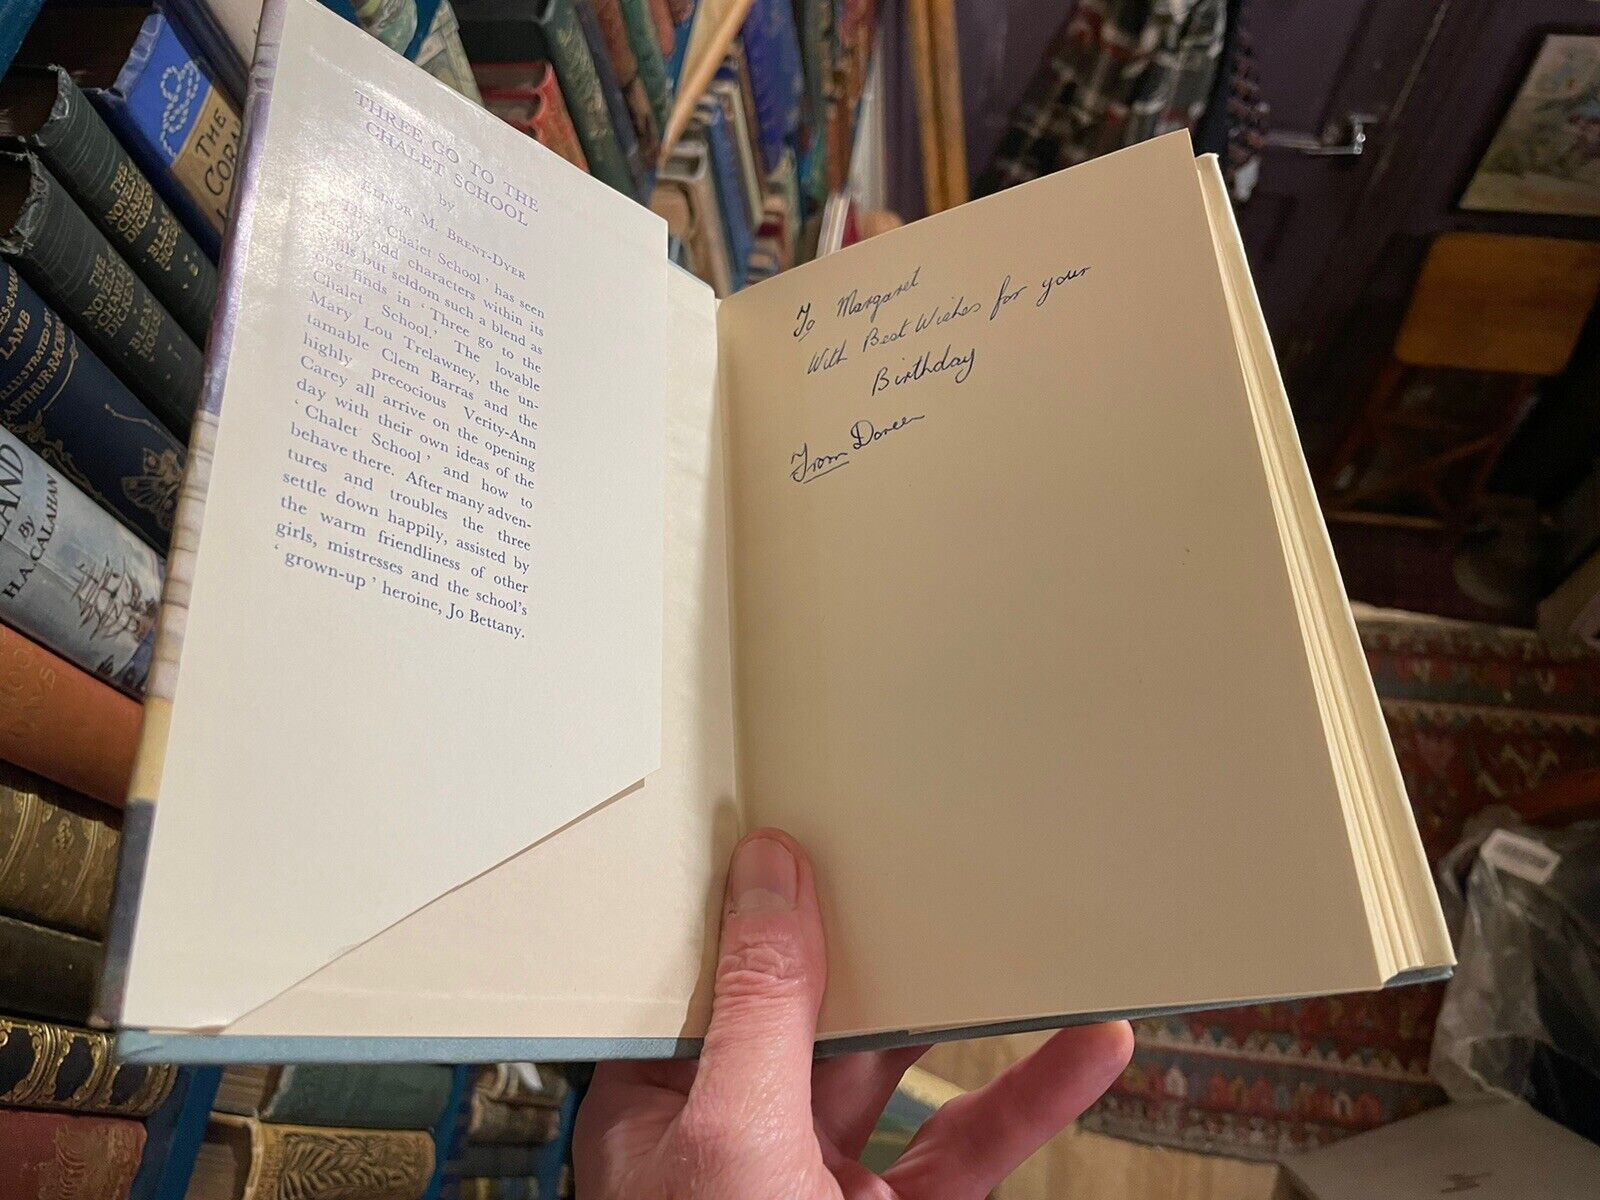 THREE GO TO THE
CHALET SCHOOL
by
ELINOR M. BRENT-DYER
The 'Chalet School' has seen
many odd characters within its
walls but seldom such a blend as
one finds in 'Three go to the
Chalet School.' The lovable
Mary Lou Trelawney, the un-
tamable Clem Barras and the
highly precocious Verity-Ann
Carey all arrive on the opening
day with their own ideas of the
'Chalet School' and how to
behave there. After many adven-
tures and troubles the three
settle down happily, assisted by
the warm friendliness of other
girls, mistresses and the school's
'grown-up' heroine, Jo Bettany.
To Margaret
With Best Wishes for your
Birthday
From Doreen
THE
CORAL
THE
NOVELS
OF
CHARLES
DICKENS
BLEAK
HOUSE
THE
NOVELS
OF
CHARLES
DICKENS
BLEAK
HOUSE
LAMB
ILLUSTRATED BY
ARTHUR RACKHAM
LAND
By
H.A. CALAHAN